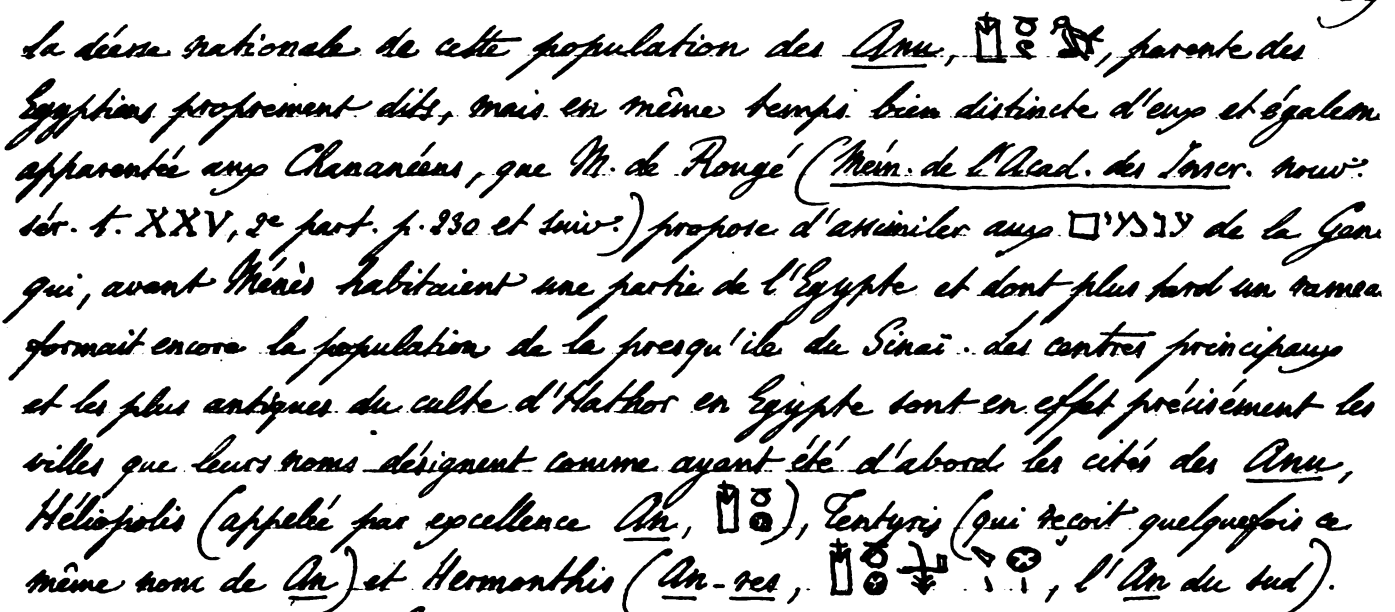 la déesse nationale de cette population des Anu, 𓉺𓏌𓀀, parente des
Egyptiens proprement dits, mais en même temps bien distincte d'eux et égalem
apparentée aux Chananéens, que M. de Rougé (Mém. de l'Acad. des Inscr. nouv.
sér. t. XXV, 2e part. p. 230 et suiv.) propose d'assimiler aux ענמים de la Gen
qui, avant Ménès habitaient une partie de l'Egypte et dont plus tard un ramea
formait encore la population de la presqu'ile du Sinaï. Les centres principaux
et les plus antiques du culte d'Hathor en Egypte sont en effet précisément les
villes que leurs noms désignent comme ayant été d'abord les cités des Anu,
Héliopolis (appelée par excellence An, 𓉺𓏌𓊖), Tentyris (qui reçoit quelquefois ce
même nom de An) et Hermonthis (An-res, l'An du sud).